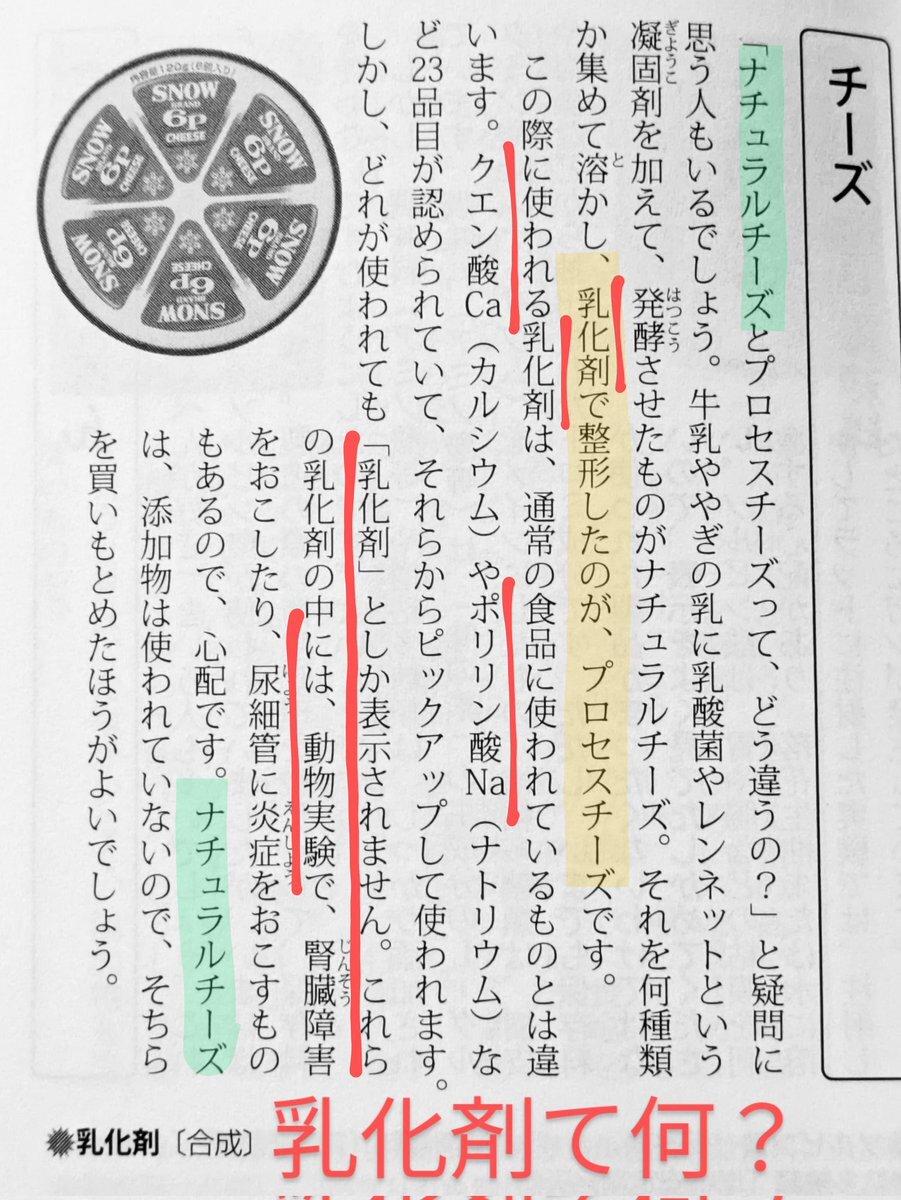 チーズ
「ナチュラルチーズとプロセスチーズって、どう違うの？」と疑問に
思う人もいるでしょう。牛乳ややぎの乳に乳酸菌やレンネットという
凝固剤を加えて、発酵させたものがナチュラルチーズ。それを何種類
か集めて溶かし、乳化剤で整形したのが、プロセスチーズです。
この際に使われる乳化剤は、通常の食品に使われているものとは違
います。クエン酸Ca（カルシウム）やポリリン酸Na（ナトリウム）な
ど23品目が認められていて、それらからピックアップして使われます。
しかし、どれが使われても「乳化剤」としか表示されません。これら
の乳化剤の中には、動物実験で、腎臓障害
をおこしたり、尿細管に炎症をおこすもの
もあるので、心配です。ナチュラルチーズ
は、添加物は使われていないので、そちら
を買いもとめたほうがよいでしょう。
内容量120g(6個入り)
SNOW
BRAND
6P
CHEESE
SNOW
6P
CHEESE
SNOW
6P
CHEESE
SNOW
BRAND
6P
CHEESE
SNOW
6P
CHEESE
SNOW
6P
CHEESE
乳化剤〔合成〕
乳化剤て何？